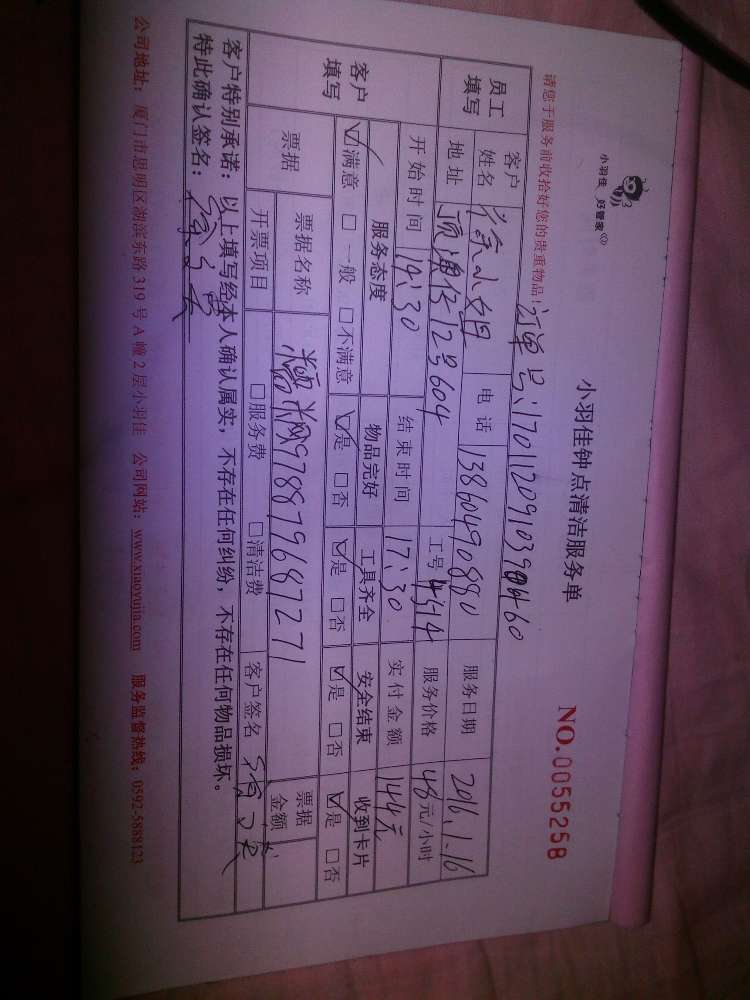 小羽佳 好管家
小羽佳钟点清洁服务单
NO.0055258
请您于服务前收拾好您的贵重物品!
订单号:
员工填写
客户姓名 徐小姐 电话 13860490880 服务日期 2016.1.16
地址 12号604 工号 4514 服务价格 48元/小时
开始时间 14:30 结束时间 17:30 实付金额 144元
客户填写
服务态度 物品完好 工具齐全 安全结束 收到卡片
☑满意 □一般 □不满意 ☑是 □否 ☑是 □否 ☑是 □否 ☑是 □否
票据 票据名称 978879687271 票据金额
开票项目 □服务费 □清洁费 客户签名
客户特别承诺:以上填写经本人确认属实,不存在任何纠纷,不存在任何物品损坏。
特此确认签名:
公司地址:厦门市思明区湖滨东路319号A幢2层小羽佳 公司网站:www.xiaoyujia.com 服务监督热线:0592-5888123